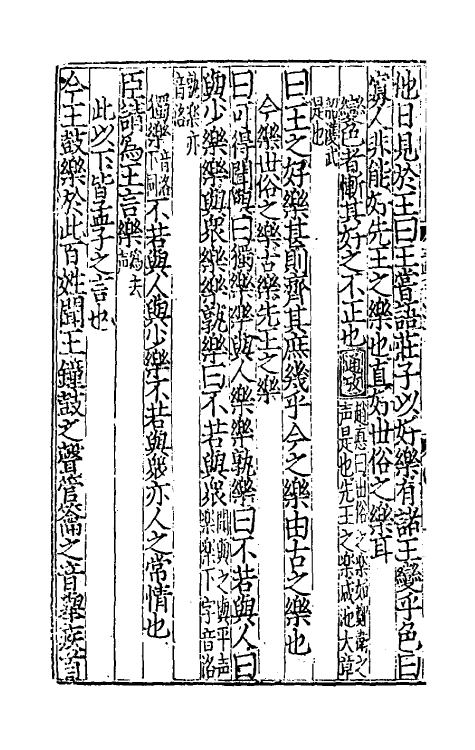 他日見於王曰王嘗語莊子以好樂有諸王變乎色曰
寡人非能好先王之樂也直好世俗之樂耳
變色者慚其好之不正也通攷趙惪曰世俗之樂如鄭衛之聲是也先王之樂咸池大章
韶濩武是也
曰王之好樂甚則齊其庶幾乎今之樂由古之樂也
今樂世俗之樂古樂先王之樂
曰可得聞與曰獨樂樂與人樂樂孰樂曰不若與人曰
與少樂樂與衆樂樂孰樂曰不若與衆聞與之與平声樂樂下字音洛
孰樂亦音洛
獨樂不若與人與少樂不若與衆亦人之常情也
臣請為王言樂為去声
此以下皆孟子之言也
今王鼓樂於此百姓聞王鐘鼓之聲管籥之音舉疾首